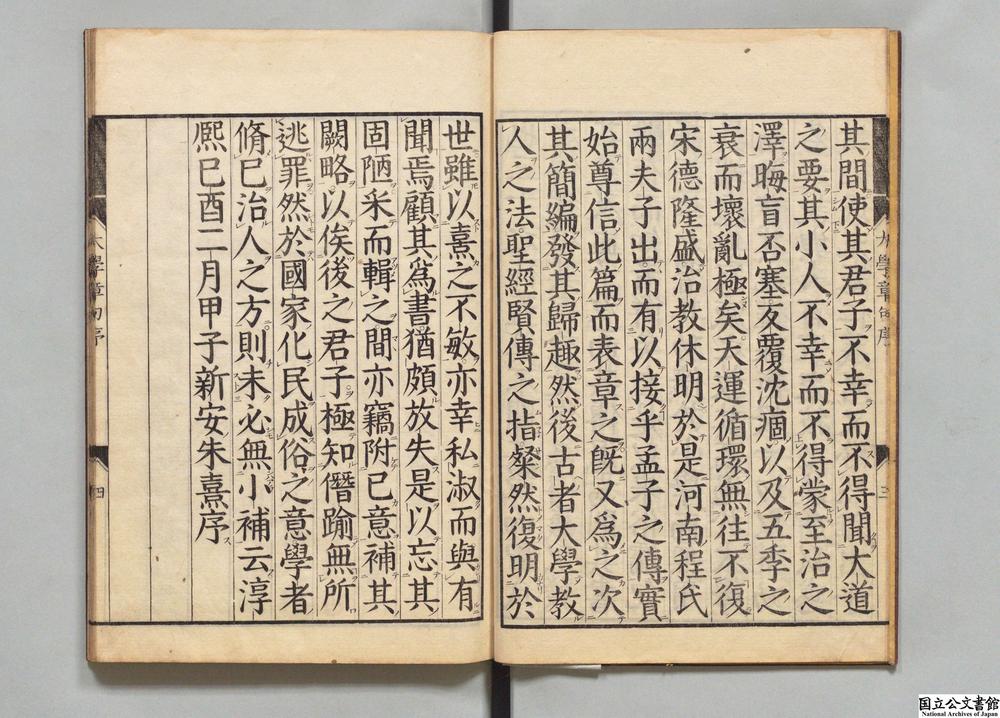 其間使其君子不幸而不得聞大道
之要其小人不幸而不得蒙至治之
澤晦盲否塞反覆沈痼以及五季之
衰而壞亂極矣天運循環無往不復
宋德隆盛治教休明於是河南程氏
兩夫子出而有以接乎孟子之傳實
始尊信此篇而表章之旣又爲之次
其簡編發其歸趣然後古者大學教
人之法聖經賢傳之指粲然復明於
大學章句序
三
世雖以熹之不敏亦幸私淑而與有
聞焉顧其爲書猶頗放失是以忘其
固陋采而輯之間亦竊附已意補其
闕略以俟後之君子極知僭踰無所
逃罪然於國家化民成俗之意學者
脩已治人之方則未必無小補云淳
熈巳酉二月甲子新安朱熹序
大學章句序
四
国立公文書館
National Archives of Japan